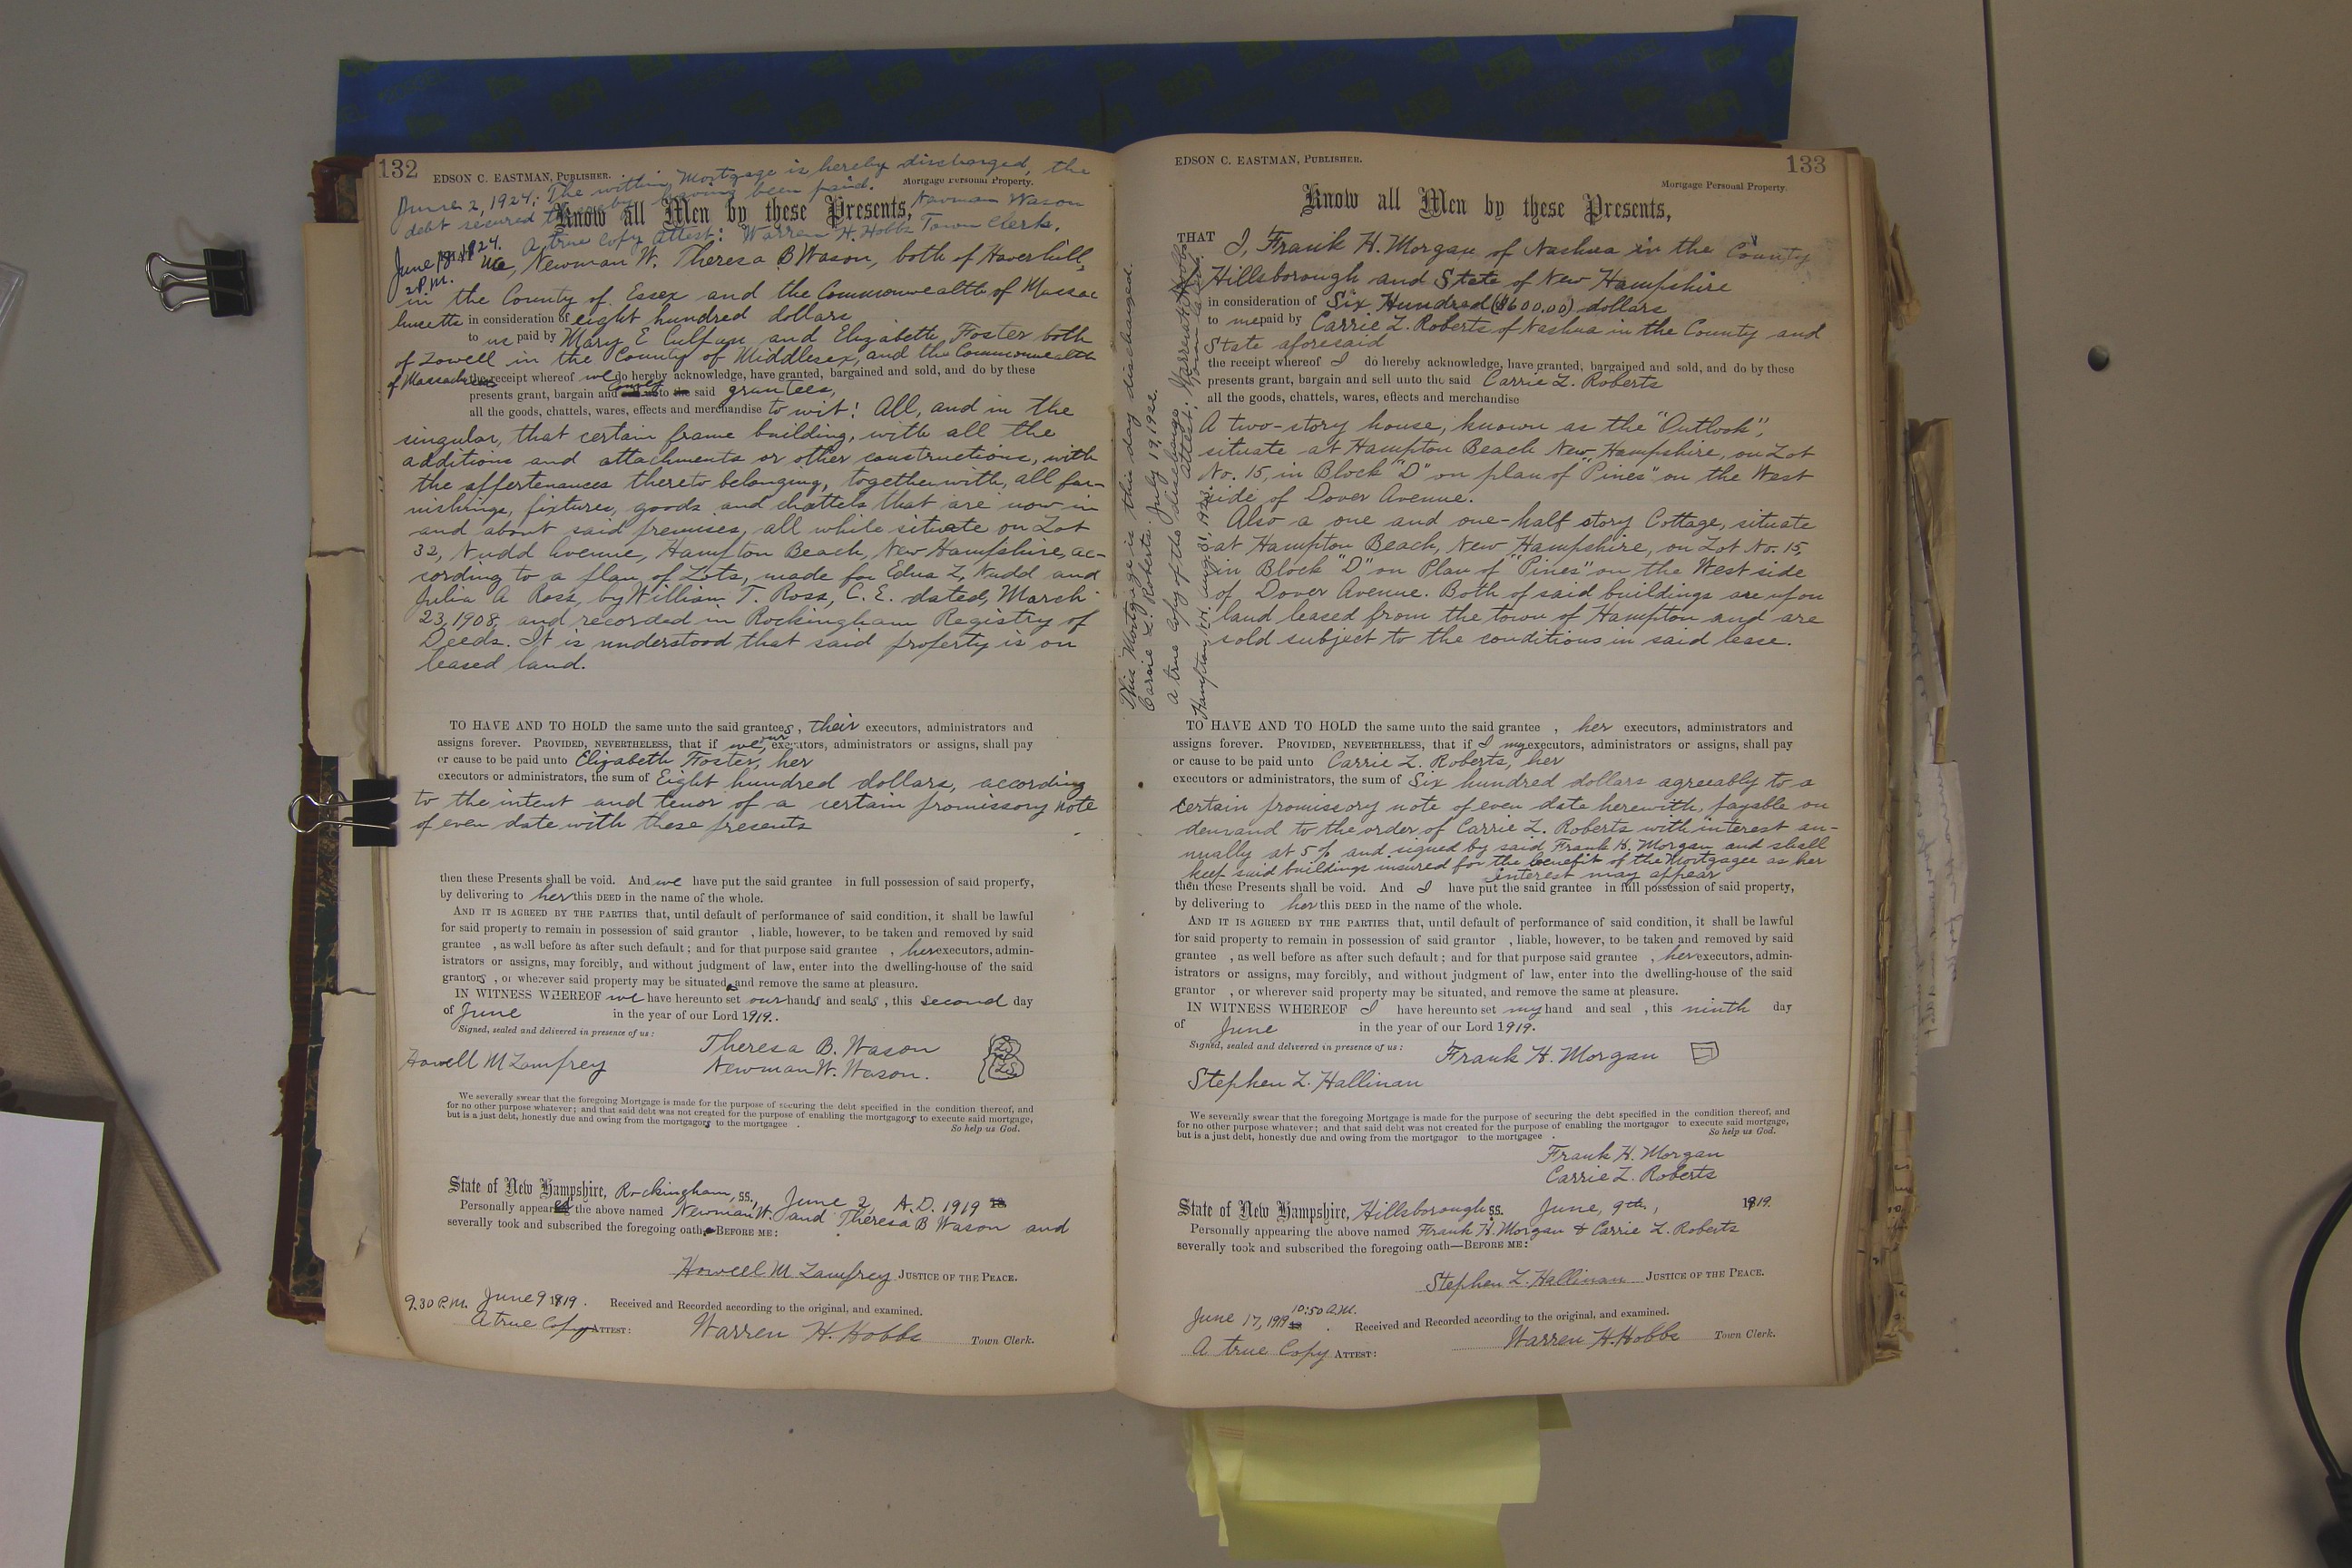 132
EDSON C. EASTMAN, PUBLISHER.
Mortgage Personal Property.
June 2, 1924: The within Mortgage is hereby discharged, the
debt secured thereby having been paid. Newman Wason
Know all Men by these Presents,
A true Copy Attest: Warren H. Hobbs Town Clerk.
June 1924.
2 P.M.
We, Newman W. Theresa B Wason, both of Haverhill,
in the County of Essex and the Commonwealth of Massac
husetts in consideration of eight hundred dollars
to us paid by Mary E and Elizabeth Foster both
of Lowell in the County of Middlesex, and the Commonwealth
of Massachusetts the receipt whereof we do hereby acknowledge, have granted, bargained and sold, and do by these
presents grant, bargain and convey to said grantees,
all the goods, chattels, wares, effects and merchandise to wit: All, and in the
singular, that certain frame building, with all the
additions and attachments or other constructions, with
the appertenances thereto belonging, together with, all fur-
nishings, fixtures, goods and chattels that are now in
and about said premises, all while situate on Lot
32, Nudd Avenue, Hampton Beach, New Hampshire, ac-
cording to a plan of Lots, made for Edna L. Nudd and
Julia A Ross, by William T. Ross, C. E. dated, March
23, 1908, and recorded in Rockingham Registry of
Deeds. It is understood that said property is on
leased land.
TO HAVE AND TO HOLD the same unto the said grantees, their executors, administrators and
assigns forever. PROVIDED, NEVERTHELESS, that if we, our executors, administrators or assigns, shall pay
or cause to be paid unto Elizabeth Foster, her
executors or administrators, the sum of Eight hundred dollars, according
to the intent and tenor of a certain promissory note
of even date with these presents
then these Presents shall be void. And we have put the said grantee in full possession of said property,
by delivering to her this DEED in the name of the whole.
AND IT IS AGREED BY THE PARTIES that, until default of performance of said condition, it shall be lawful
for said property to remain in possession of said grantor , liable, however, to be taken and removed by said
grantee , as well before as after such default; and for that purpose said grantee , her executors, admin-
istrators or assigns, may forcibly, and without judgment of law, enter into the dwelling-house of the said
grantors , or wherever said property may be situated, and remove the same at pleasure.
IN WITNESS WHEREOF we have hereunto set our hands and seals , this second day
of June in the year of our Lord 1919.
Signed, sealed and delivered in presence of us:
Howell M Lamprey
Theresa B. Wason
Newman W. Wason.
LS
LS
We severally swear that the foregoing Mortgage is made for the purpose of securing the debt specified in the condition thereof, and
for no other purpose whatever; and that said debt was not created for the purpose of enabling the mortgagors to execute said mortgage,
but is a just debt, honestly due and owing from the mortgagors to the mortgagee .
So help us God.
State of New Hampshire, Rockingham, SS., June 2, A.D. 1919
Personally appeared the above named Newman W. and Theresa B Wason and
severally took and subscribed the foregoing oath, BEFORE ME:
Howell M Lamprey JUSTICE OF THE PEACE.
9.30 P.M. June 9 1919. Received and Recorded according to the original, and examined.
A true Copy ATTEST: Warren H. Hobbs Town Clerk.
133
EDSON C. EASTMAN, PUBLISHER.
Mortgage Personal Property.
Know all Men by these Presents,
THAT I, Frank H. Morgan of Nashua in the County
Hillsborough and State of New Hampshire
in consideration of Six Hundred ($600.00) dollars
to me paid by Carrie L. Roberts of Nashua in the County and
State aforesaid
the receipt whereof I do hereby acknowledge, have granted, bargained and sold, and do by these
presents grant, bargain and sell unto the said Carrie L. Roberts
all the goods, chattels, wares, effects and merchandise
A two-story house, known as the "Outlook",
situate at Hampton Beach New Hampshire, on Lot
No. 15, in Block "D" on plan of "Pines" on the West
side of Dover Avenue.
Also a one and one-half story Cottage, situate
at Hampton Beach, New Hampshire, on Lot No. 15,
in Block "D" on Plan of "Pines" on the West side
of Dover Avenue. Both of said buildings are upon
land leased from the town of Hampton and are
sold subject to the conditions in said lease.
This Mortgage is this day discharged.
Carrie L. Roberts July 19, 1922.
A true copy of the discharge
attest: Warren H. Hobbs
Town Clerk.
Hampton, N.H. Aug. 31, 1923
TO HAVE AND TO HOLD the same unto the said grantee , her executors, administrators and
assigns forever. PROVIDED, NEVERTHELESS, that if I my executors, administrators or assigns, shall pay
or cause to be paid unto Carrie L. Roberts, her
executors or administrators, the sum of Six hundred dollars agreeably to a
certain promissory note of even date herewith, payable on
demand to the order of Carrie L. Roberts with interest an-
nually at 5% and signed by said Frank H. Morgan and shall
keep said buildings insured for the benefit of the Mortgagee as her
interest may appear
then these Presents shall be void. And I have put the said grantee in full possession of said property,
by delivering to her this DEED in the name of the whole.
AND IT IS AGREED BY THE PARTIES that, until default of performance of said condition, it shall be lawful
for said property to remain in possession of said grantor , liable, however, to be taken and removed by said
grantee , as well before as after such default; and for that purpose said grantee , her executors, admin-
istrators or assigns, may forcibly, and without judgment of law, enter into the dwelling-house of the said
grantor , or wherever said property may be situated, and remove the same at pleasure.
IN WITNESS WHEREOF I have hereunto set my hand and seal , this ninth day
of June in the year of our Lord 1919.
Signed, sealed and delivered in presence of us:
Frank H. Morgan
Stephen L. Hallinan
We severally swear that the foregoing Mortgage is made for the purpose of securing the debt specified in the condition thereof, and
for no other purpose whatever; and that said debt was not created for the purpose of enabling the mortgagor to execute said mortgage,
but is a just debt, honestly due and owing from the mortgagor to the mortgagee .
So help us God.
Frank H. Morgan
Carrie L. Roberts
State of New Hampshire, Hillsborough SS. June, 9th, 1919.
Personally appearing the above named Frank H. Morgan & Carrie L. Roberts
severally took and subscribed the foregoing oath—BEFORE ME:
Stephen L. Hallinan JUSTICE OF THE PEACE.
June 17, 1919 10:50 A.M. Received and Recorded according to the original, and examined.
A true Copy ATTEST: Warren H. Hobbs Town Clerk.